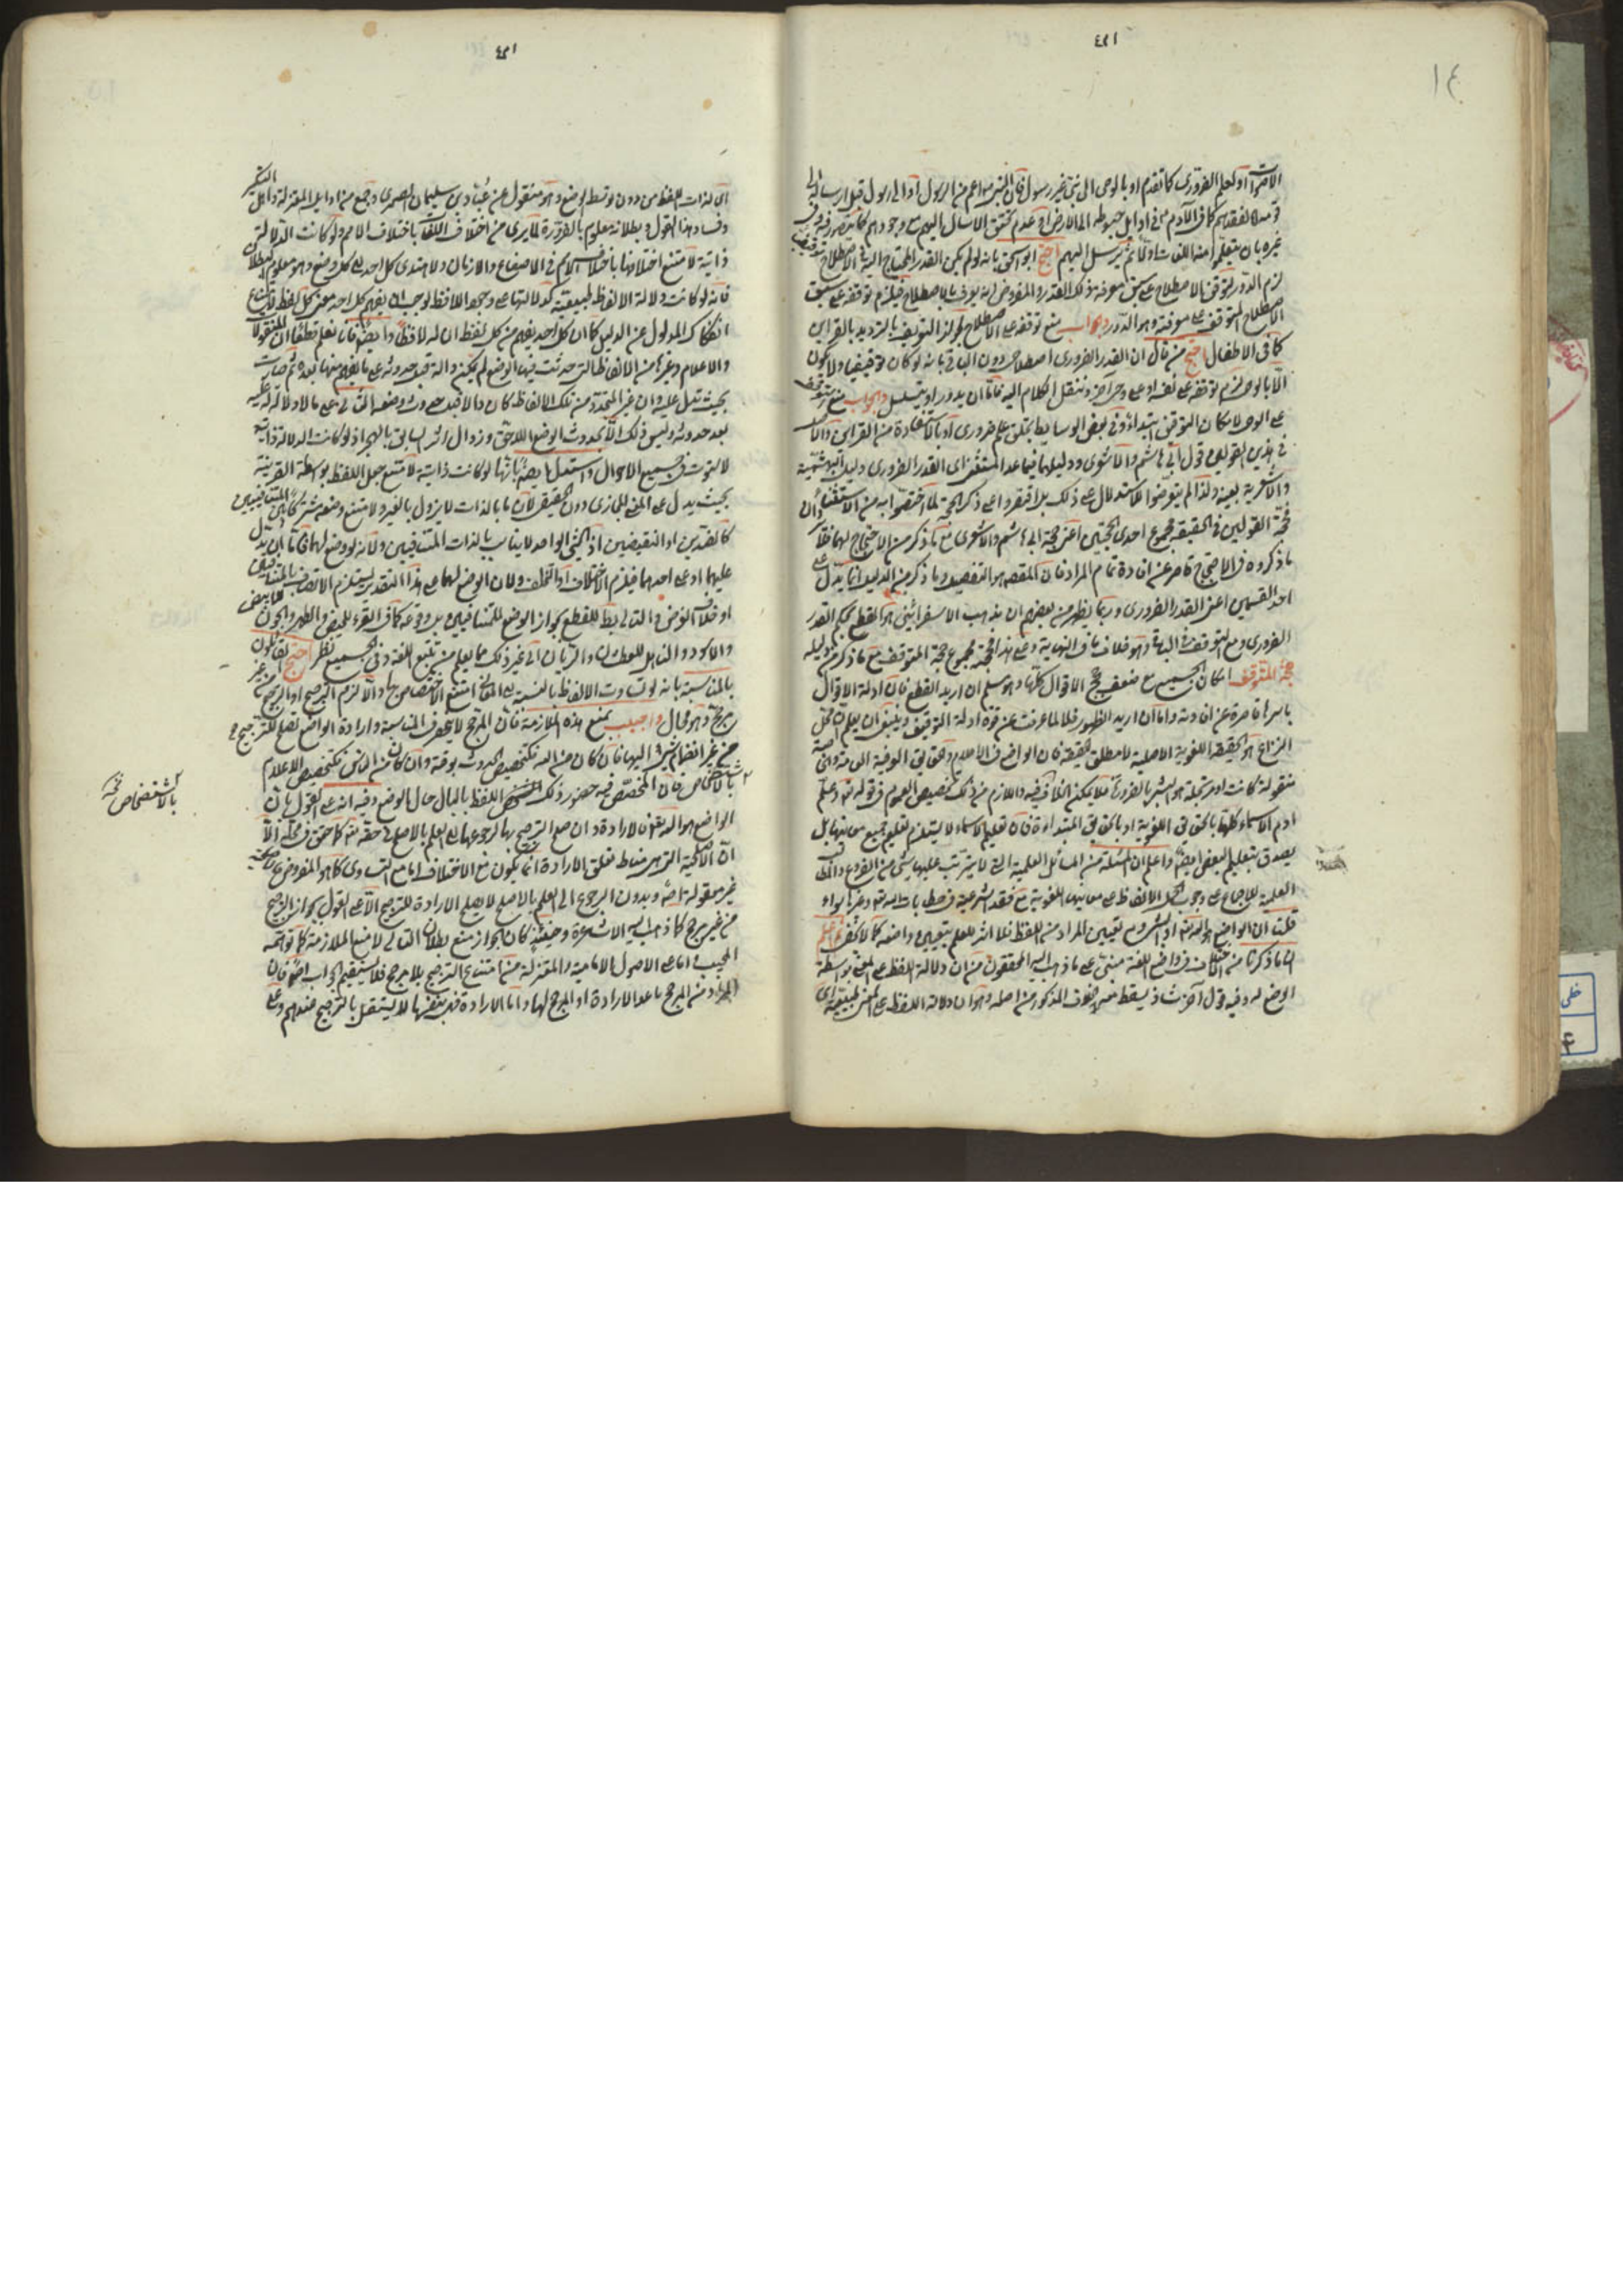 ١٤
الاصوات او لعلم الضرورى كما تقدم او بالوحى الى نبى غير رسول فان النبى اعم من الرسول او الى رسول قبل ارساله الى
قوم لفقدهم كما فى الآدم فى اوايل هبوطه الى الارض او عدم تحقق الارسال اليهم مع وجودهم
غيره بان يتعلموا منه اللغات اولا ثم يرسل اليهم احتج ابو اسحق بانه لو لم يكن القدر المحتاج اليه فى الاصطلاح توقيفيا
لزم الدور لتوقف الاصطلاح على سبق معرفة ذلك القدر والمفروض انه يعرف بالاصطلاح فيلزم توقفه على سبق
الاصطلاح المتوقف على معرفته وهو الدور والجواب منع توقفه على الاصطلاح لجواز التعريف بالترديد بالقراين
كما فى الاطفال احتج من قال ان القدر الضرورى اصطلاحى دون الباقى بانه لو كان توقيفيا ولا يكون
الا بالوحى لزم توقفه على نفسه او على وحى اخر وننقل الكلام اليه فاما ان يدور او يتسلسل والجواب منع توقفه
على الوحى لامكان التوقيف ابتداء وفى بعض الوسايط بخلق علم ضرورى او بالاستفادة من القراين والاصل
فى هذين القولين قول ابى هاشم والاشعرى ودليلهما فيما عدا المستثنى اى القدر الضرورى دليل البهشمية
والاشعرية بعينه ولذا لم يتعرضوا للاستدلال على ذلك بل اقتصروا على ذكر الحجة لما اختصوا به من الاستثناء
فحجة القولين فى الحقيقة مجموع احدى الحجتين اعنى حجة ابى هاشم والاشعرى مع ما ذكر من الاحتجاج لهما
ما ذكروه فى الاحتجاج قاصر عن افادة تمام المراد فان المقصد هو التفصيل وما ذكر من الدليل انما يدل على
احد القسمين اعنى القدر الضرورى وربما يظهر من بعضهم ان مذهب الاسفراينى هو القطع بحكم القدر
الضرورى ومع التوقف فى الباقى وهو خلاف ما فى النهاية وعلى هذا فحجته مجموع حجة المتوقف مع ما ذكر من دليله
حجة المتوقف امكان الجميع مع ضعف حجج الاقوال كلها وهو مسلم ان اريد القطع فان ادلة الاقوال
باسرها قاصرة عن افادته واما ان اريد الظهور فلا لما عرفت من قوة ادلة التوقيف وينبغى ان يعلم ان محل
النزاع هو الحقيقة اللغوية الاصلية لا مطلق الحقيقة فان الواضع فى الاعلام وحقايق العرفية العامة والخاصة
منقولة كانت او مرتجلة هو البشر بالضرورة فلا يمكن الخلاف فيه واللازم من ذلك تخصيص العموم فى قوله تعالى وعلم
ادم الاسماء كلها بالحقايق اللغوية او بالحقايق المبتداءة فان تعليم الاسماء لا يستلزم تعليم جميع معانيها بل
يصدق بتعليم البعض ايضا واعلم ان المسئلة من المسائل العلمية التى لا يترتب عليها شئ من الفروع
العملية للاجماع على وجوب حمل الالفاظ على معانيها اللغوية مع فقد الشرعية فى خطابات الله تعالى وغيرها سواء
قلنا ان الواضع هو الله تعالى او البشر ومع تعيين المراد من اللفظ فلا اثر للعلم بتعيين واضعه كما لا يخفى ثم اعلم
ان ما ذكرنا من الاختلاف فى واضع اللغة مبنى على ما ذهب اليه المحققون من ان دلالة اللفظ على المعنى بواسطة
الوضع له وفيه قول آخر شاذ يسقط معه الخلاف المذكور من اصله وهو ان دلالة اللفظ على المعنى طبيعية اى
اى لذات اللفظ من دون توسط الوضع وهو منقول عن عباد بن سليمان الصيمرى وجمع من اوايل المعتزلة واهل التكسير
وفساد هذا القول وبطلانه معلوم بالضرورة لما يرى من اختلاف اللغات باختلاف الامم ولو كانت الدلالة
ذاتية لامتنع اختلافها باختلاف الامم فى الاصقاع والازمان ولاهتدى كل احد الى كل وضع وهو معلوم البطلان
فانه لو كانت دلالة الالفاظ طبيعية كدلالتها على وجود اللافظ لوجب ان يفهم كل احد معنى كل لفظ لامتناع
انفكاك المدلول عن الدليل كما ان كل احد يفهم من كل لفظ ان له لافظا وايضا فانا نعلم قطعا ان المنقولات
والاعلام وغيرها من الالفاظ التى حدثت فيها الوضع لم يكن دالة قبل حدوثه على ما يفهم منها بعده ثم صارت
بحيث تدل عليه وان غير المتجددة من تلك الالفاظ كان دالا قبل حدوث وضعه الثانى على ما لا دلالة له عليه
بعد حدوثه وليس ذلك الا بحدوث الوضع اللاحق وزوال اثر السابق بالهجر اذ لو كانت الدلالة ذاتية
لاستوت فى جميع الاحوال واستدل ايضا بانها لو كانت ذاتية لامتنع جعل اللفظ بواسطة القرينة
بحيث يدل على المعنى المجازى دون الحقيقى لان ما بالذات لا يزول بالغير ولامتنع وضعه مشتركا بين المتنافيين
كالضدين او النقيضين اذ الشئ الواحد لا يناسب بالذات المتنافيين ولانه لو وضع لهما فاما ان يدل
عليهما او على احدهما فيلزم الاختلاف او التخلف ولان الوضع لهما على هذا التقدير يستلزم الاتصاف بالمتنافيين
او خلاف الفرض والتالى بط للقطع بجواز الوضع للمتنافيين بل وقوعه كما فى القرء للحيض والطهر والجون للابيض
والاسود والناهل للعطشان والريان الى غير ذلك مما يعلم من تتبع اللغة وفى الجميع نظر احتج القائلون
بالمناسبة بانه لو تساوت الالفاظ بالنسبة الى المعانى امتنع الاختصاص والا لزم الترجيح او الترجح من غير
مرجح وهو محال واجيب بمنع هذه الملازمة فان المرجح لا ينحصر فى المناسبة وارادة الواضع تصلح للترجيح
من غير انضمام شئ اليها فان كان من الله فكتخصيص الحدوث بوقته وان كان من الناس فكتخصيص الاعلام
بالاشخاص فان المخصص فيه حضور ذلك الشخص اللفظ بالبال حال الوضع وفيه انه على القول بان
الواضع هو الله تعالى فالارادة وان صلح الترجيح بها لرجوعها الى العلم بالاصلح فى حقه تعالى كما حقق فى محله الا
ان الاصلحية التى هى مناط تعلق الارادة انما يكون مع الاختلاف اما مع التساوى كما هو المفروض
غير معقولة خاصة وبدون الرجوع الى العلم بالاصلح لا يصلح الارادة للترجيح الا على القول بجواز الترجيح
من غير مرجح كما ذهب اليه الاشاعرة وحينئذ كان الجواز منع بطلان التالى لا منع الملازمة كما توهمه
المجيب واما على الاصول الامامية والمعتزلة من امتناع الترجيح بلا مرجح فلا يستقيم الجواب اصلا فان
المراد من المرجح ما عدا الارادة او المرجح لها واما الارادة فهى بنفسها لا يستقل بالترجيح عندهم وعلى
بالاشخاص نسخه